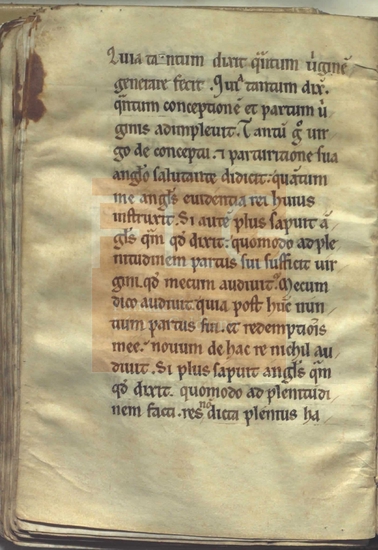 Quia tantum dixit q̃ntum ũginẽ
generare fecit. Qui᷑ tantum dix᷑.
q̃ntum conceptionẽ et partum ũ
ginis adimpleuit. Tantũ g̊ uir
go de conceptu. ⁊ parturitione sua
angło salutante didicit. quãtum
me angłs euidentia rei huius
instruxit. Si autẽ plus sapuit ã
głs q̃m qđ dixit. quomodo ad ple
nitudinem partus sui sufficit uir
gini. qđ mecum audiuit. Mecum
dico audiuit. quia post hũc nun
tium partus sui. et redemptiõis
mee. nouum de hac re nichil au
diuit. Si plus sapuit angłs q̃m
qđ dixit. quomodo ad plenitudi
nem facti. res nõ dicta plenius ha